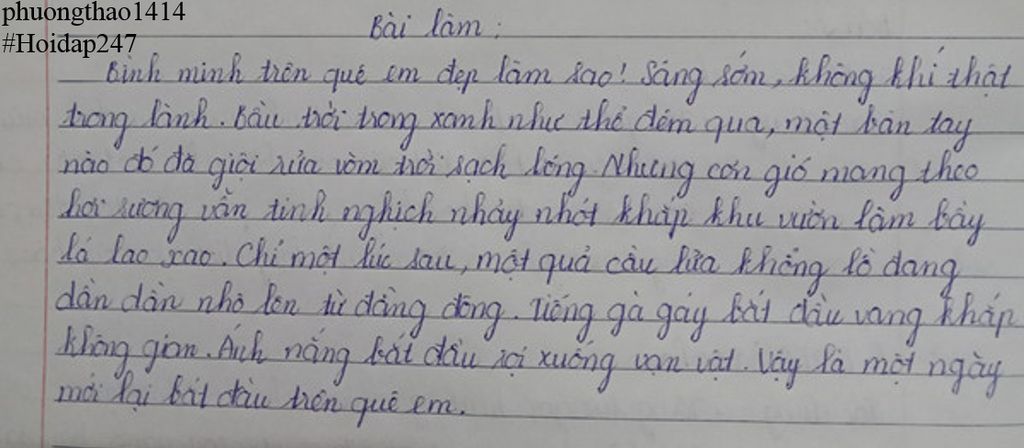 phuongthao1414
#Hoidap247
Bài làm:
Bình minh trên quê em đẹp làm sao! Sáng sớm, không khí thật
trong lành. Bầu trời trong xanh như thể đêm qua, một bàn tay
nào đó đã giội rửa vòm trời sạch lóng. Những cơn gió mang theo
hơi sương vẫn tinh nghịch nhảy nhót khắp khu vườn làm bầy
lá lao xao. Chỉ một lúc sau, một quả cầu lửa khổng lồ đang
dần dần nhô lên từ đằng đông. Tiếng gà gáy bắt đầu vang khắp
không gian. Ánh nắng bắt đầu rọi xuống vạn vật. Vậy là một ngày
mới lại bắt đầu trên quê em.